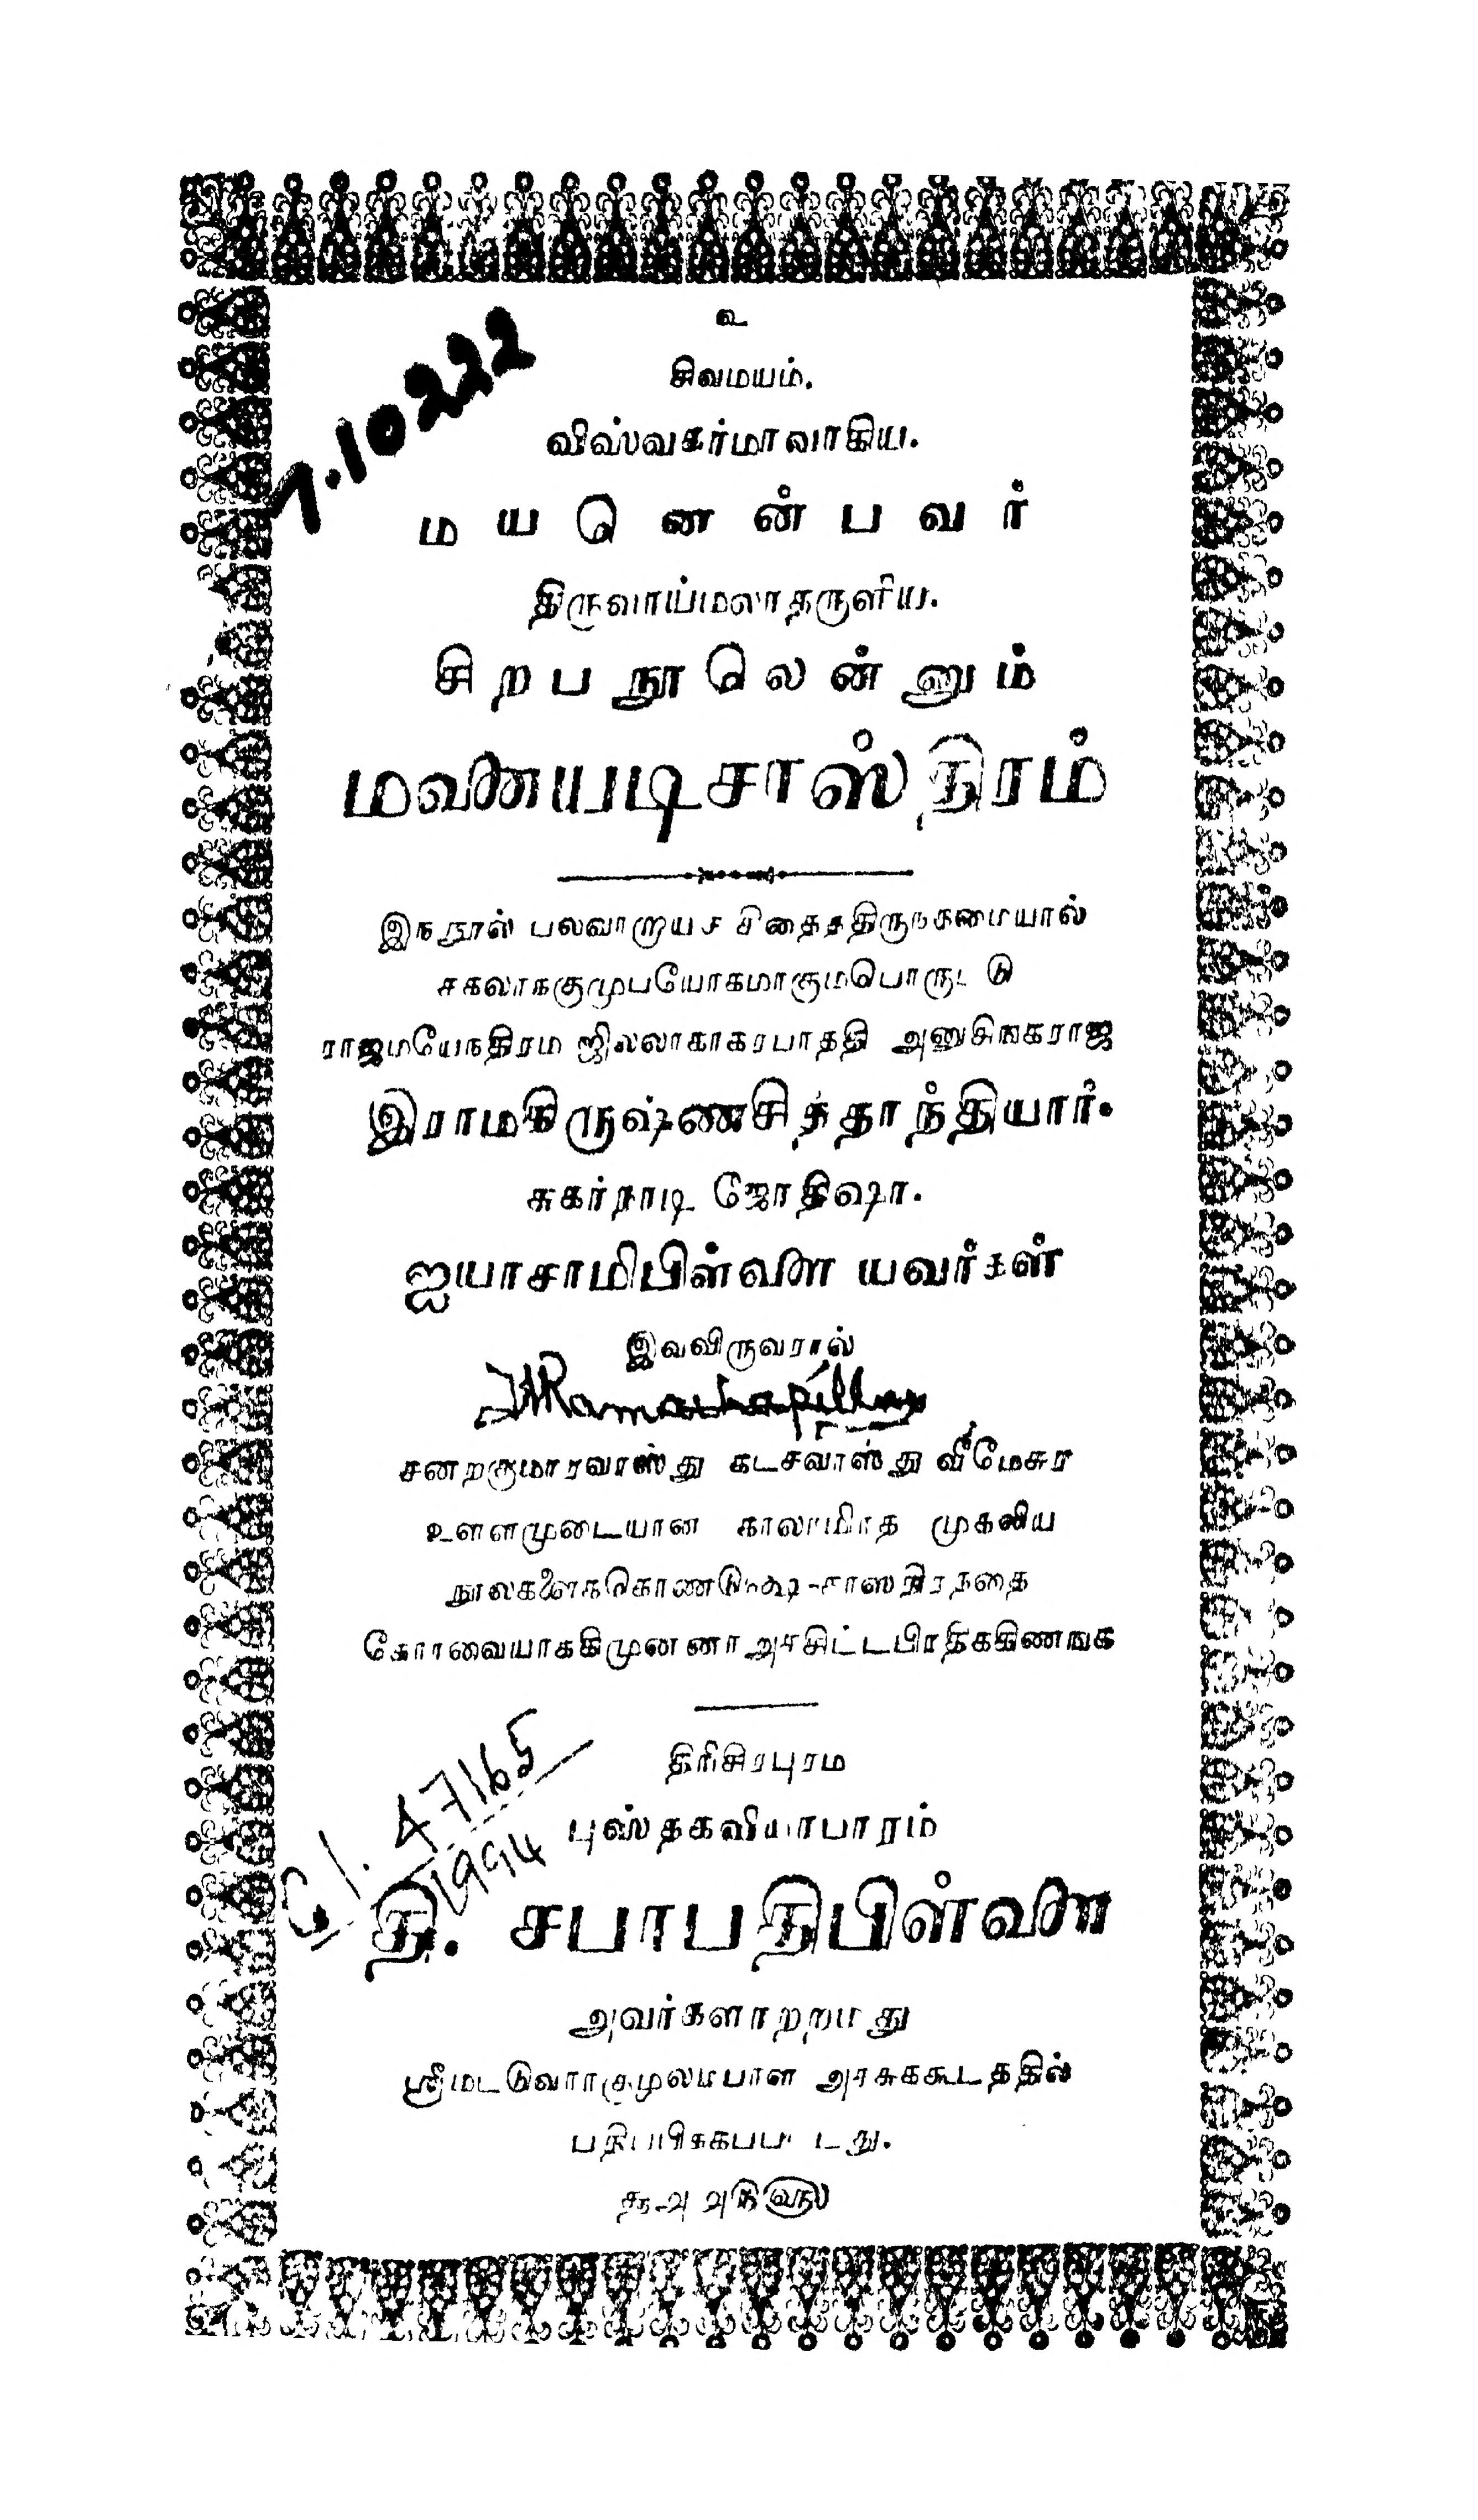 உ
சிவமயம்.
7.10222
விஸ்வகர்மாவாகிய.
மயனென்பவர்
திருவாய்மலாதருளிய.
சிறபநூலென்னும்
மனையடிசாஸ்திரம்
இநநூல் பலவாறாய்ச சிதைததிருநதமையால்
சகலாககுமுபயோகமாகுமபொருட்டு
ராஜமயேநதிரம ஜில்லாகாகரபாததி அனுசிஙகராஜ
இராமகிருஷ்ணசித்தாந்தியார்.
சுகர்நாடி ஜோதிஷா.
ஐயாசாமிபிள்ளை யவர்கள்
இவவிருவரால்
சனறகுமாரவாஸ்து கடசவாஸ்து வீமேசுர
உளளமுடையான காலாமிாத முகலிய
நூலகளைககொணடு சாஸதிரததை
கோாவையாககிமுனனா அசசிட்டபிரதிககிணஙக
திரிசிரபுரம
புஸ்தகவியாபாரம்
G1. 47165
1994
தி. சபாபதிபிள்ளை
அவர்களாறறமது
ஸ்ரீமடடுவாாகுழலமபாள அசசுககூடததில்
பதிபபிககபபட்டது.